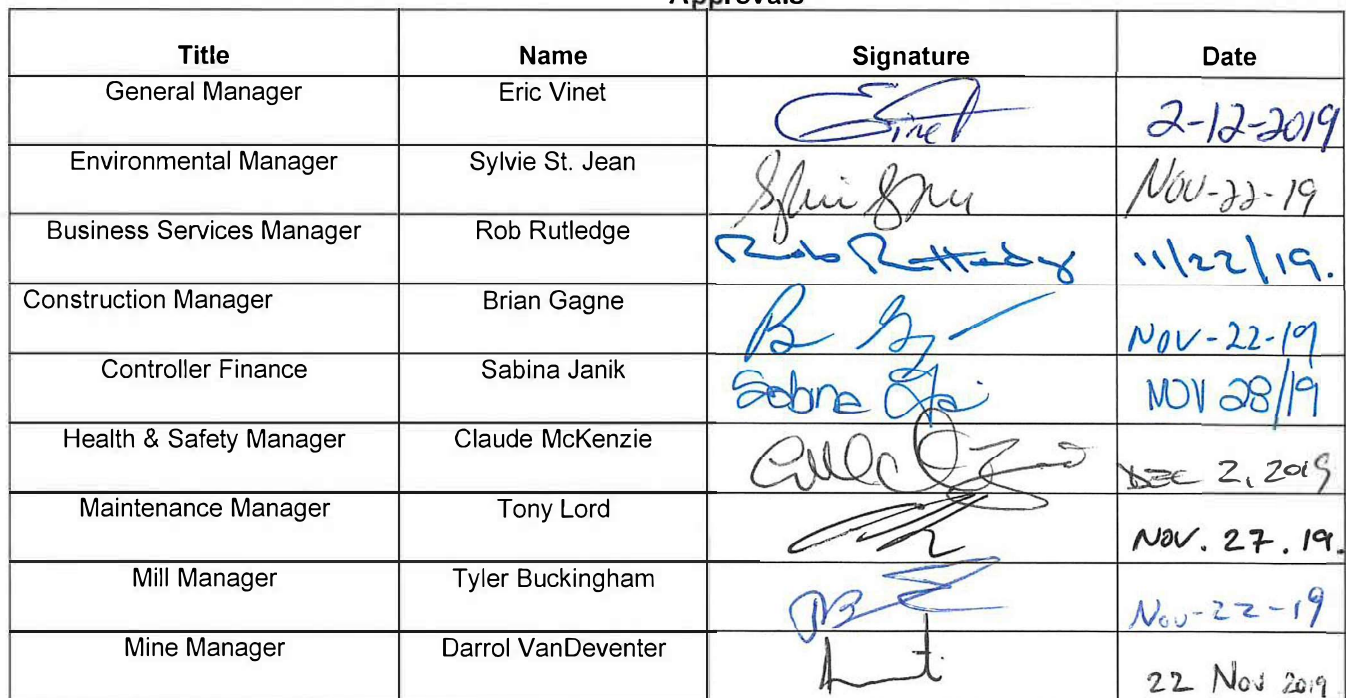 Approvals
Title Name Signature Date
General Manager Eric Vinet EVinet 2-12-2019
Environmental Manager Sylvie St. Jean NOV-22-19
Business Services Manager Rob Rutledge Rob Rutledge 11/22/19.
Construction Manager Brian Gagne NOV-22-19
Controller Finance Sabina Janik NOV 28/19
Health & Safety Manager Claude McKenzie DEC 2, 2019
Maintenance Manager Tony Lord NOV. 27. 19.
Mill Manager Tyler Buckingham Nov-22-19
Mine Manager Darrol VanDeventer 22 Nov 2019